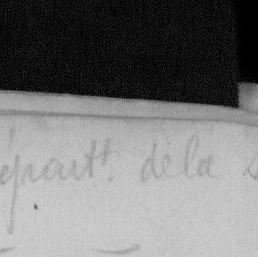 épartt. de la